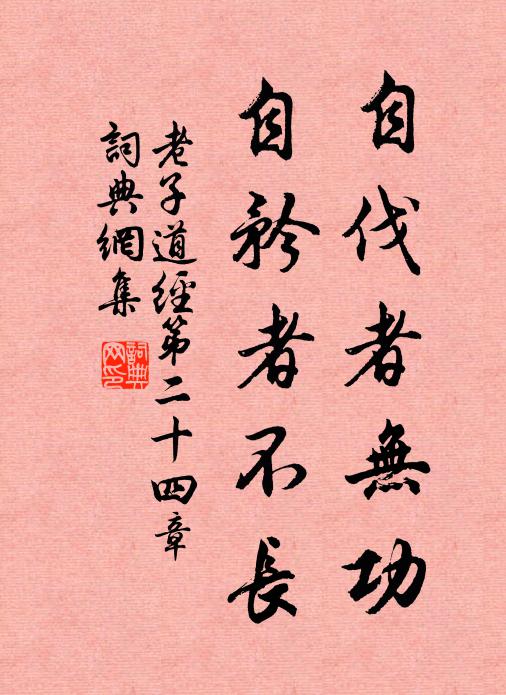 自伐者無功
自矜者不長
老子道經第二十四章
詞典網集
詞典網印